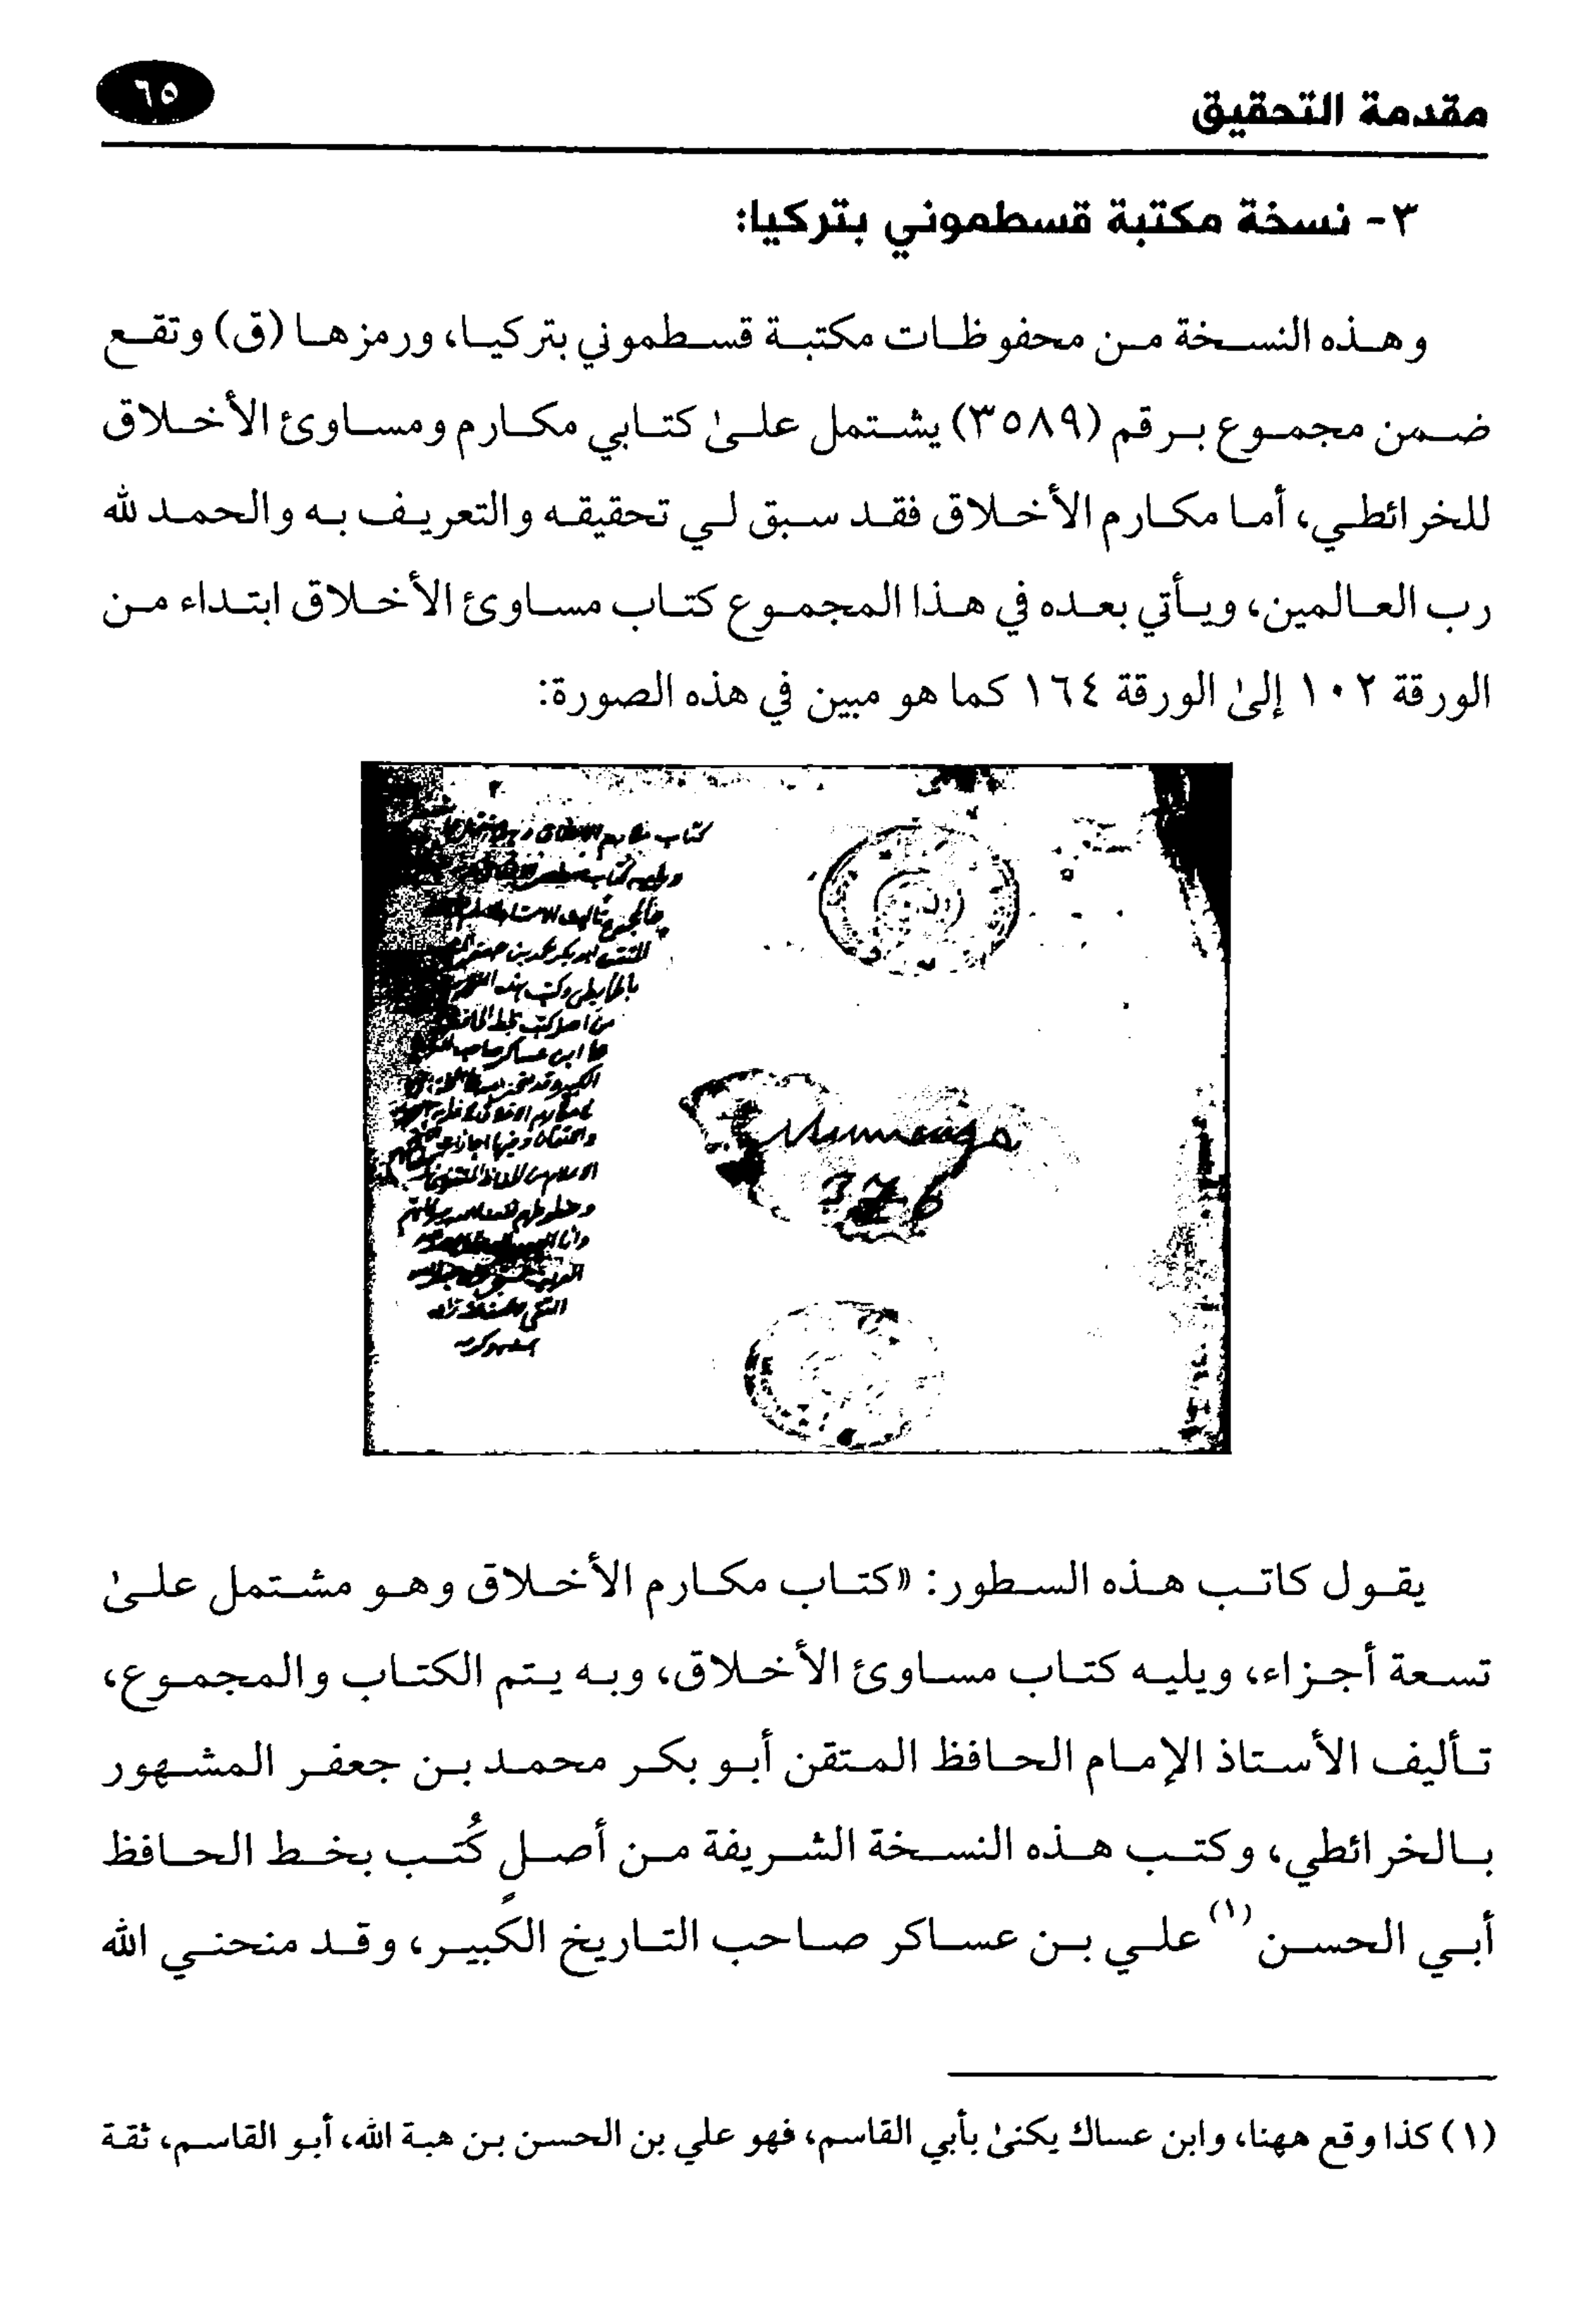 مقدمة التحقيق
٦٥
٣- نسخة مكتبة قسطموني بتركيا:
وهذه النسخة من محفوظات مكتبة قسطموني بتركيا، ورمزها (ق) وتقع
ضمن مجموع برقم (٣٥٨٩) يشتمل علىٰ كتابي مكارم ومساوئ الأخلاق
للخرائطي، أما مكارم الأخلاق فقد سبق لي تحقيقه والتعريف به والحمد لله
رب العالمين، ويأتي بعده في هذا المجموع كتاب مساوئ الأخلاق ابتداء من
الورقة ١٠٢ إلىٰ الورقة ١٦٤ كما هو مبين في هذه الصورة:
كتاب مكارم الاخلاق
ويليه كتاب
تأليف
ابو بكر محمد بن جعفر
من اصل كتب بخط الحافظ
ابن عساكر صاحب
376
يقول كاتب هذه السطور: «كتاب مكارم الأخلاق وهو مشتمل علىٰ
تسعة أجزاء، ويليه كتاب مساوئ الأخلاق، وبه يتم الكتاب والمجموع،
تأليف الأستاذ الإمام الحافظ المتقن أبو بكر محمد بن جعفر المشهور
بالخرائطي، وكتب هذه النسخة الشريفة من أصلٍ كُتب بخط الحافظ
أبي الحسن(١) علي بن عساكر صاحب التاريخ الكبير، وقد منحني الله
(١) كذا وقع ههنا، وابن عساك يكنىٰ بأبي القاسم، فهو علي بن الحسن بن هبة الله، أبو القاسم، ثقة